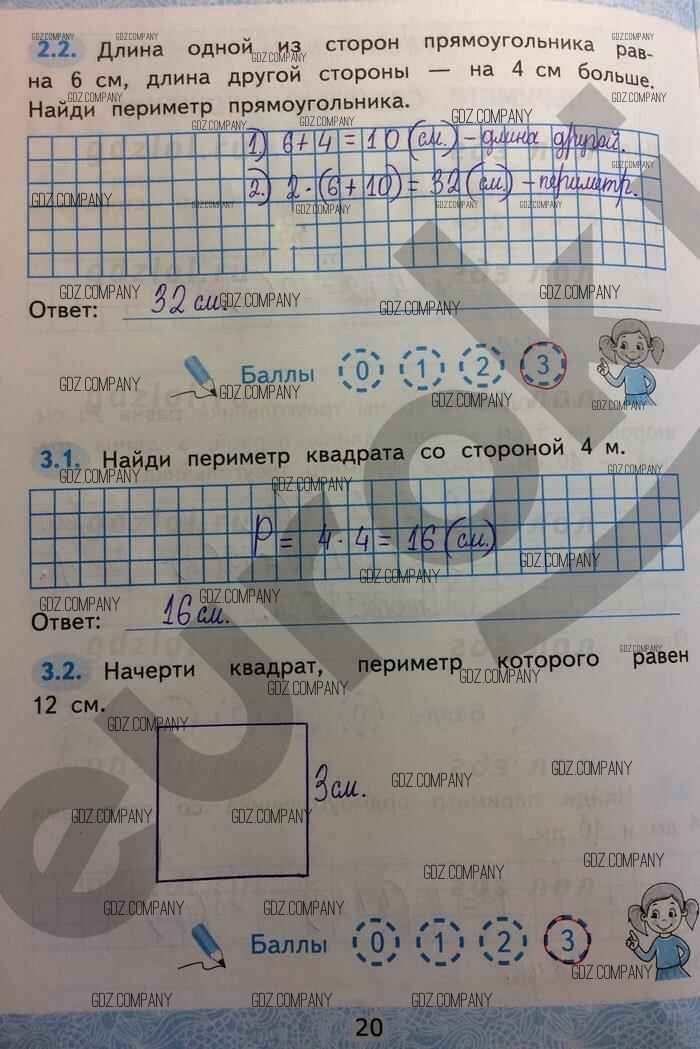 2.2. Длина одной из сторон прямоугольника рав-
на 6 см, длина другой стороны — на 4 см больше.
Найди периметр прямоугольника.
1) 6+4=10(см.)-длина другой.
2.) 2·(6+10)=32(см.)-периметр.
Ответ: 32 см.
Баллы 0 1 2 3
3.1. Найди периметр квадрата со стороной 4 м.
P= 4·4=16(см.)
Ответ: 16 см.
3.2. Начерти квадрат, периметр которого равен
12 см.
3см.
Баллы 0 1 2 3
20
GDZ.COMPANY
euroki